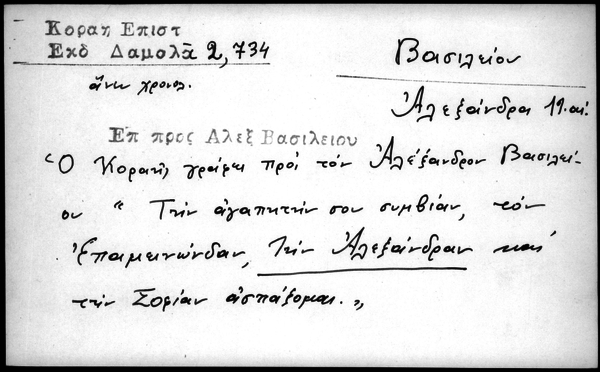 Κοραη Επιστ
Εκδ Δαμολᾶ 2,734
ἄνευ χρονολ.
Βασιλείου
Ἀλεξάνδρα 19. αἰ.
Επ προς Αλεξ Βασιλειου
"Ὁ Κοραῆς γράφει πρός τόν Ἀλέξανδρον Βασιλεί-
ου " Τήν ἀγαπητήν σου συμβίαν, τόν
Ἐπαμεινώνδαν, τήν Ἀλεξάνδραν καί
τήν Σοφίαν ἀσπάζομαι. "